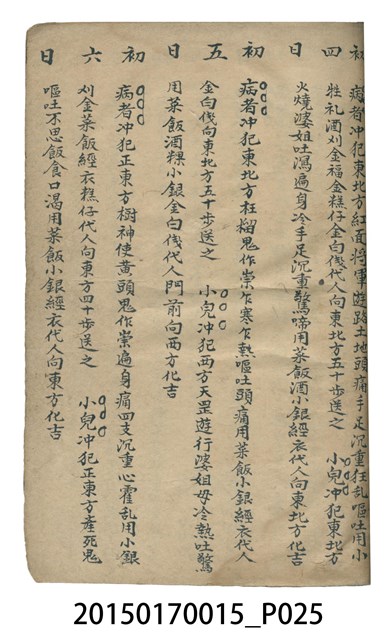 初 病者冲犯東北方紅面將軍遊路土地頭痛手足沉重狂乱嘔吐用小
四 牲礼酒刈金福金糕仔金白伐代人向東北方五十步送之 小兒冲犯東北方
日 火燒婆姐吐瀉遍身冷手足沉重驚啼用菜飯酒小銀經衣代人向東北方化吉
初 病者冲犯東北方枉榴鬼作祟乍寒乍熱嘔吐頭痛用菜飯小銀經衣代人
五 金白伐向東北方五十步送之 小兒冲犯西方天罡遊行婆姐母冷熱吐驚
日 用菜飯酒粿小銀金白伐代人門前向西方化吉
初 病者冲犯正東方樹神使黄頭鬼作祟遍身痛四支沉重心霍乱用小銀
六 刈金菜飯經衣糕仔代人向東方四十步送之 小兒冲犯正東方產死鬼
日 嘔吐不思飯食口渴用菜飯小銀經衣代人向東方化吉
20150170015_P025